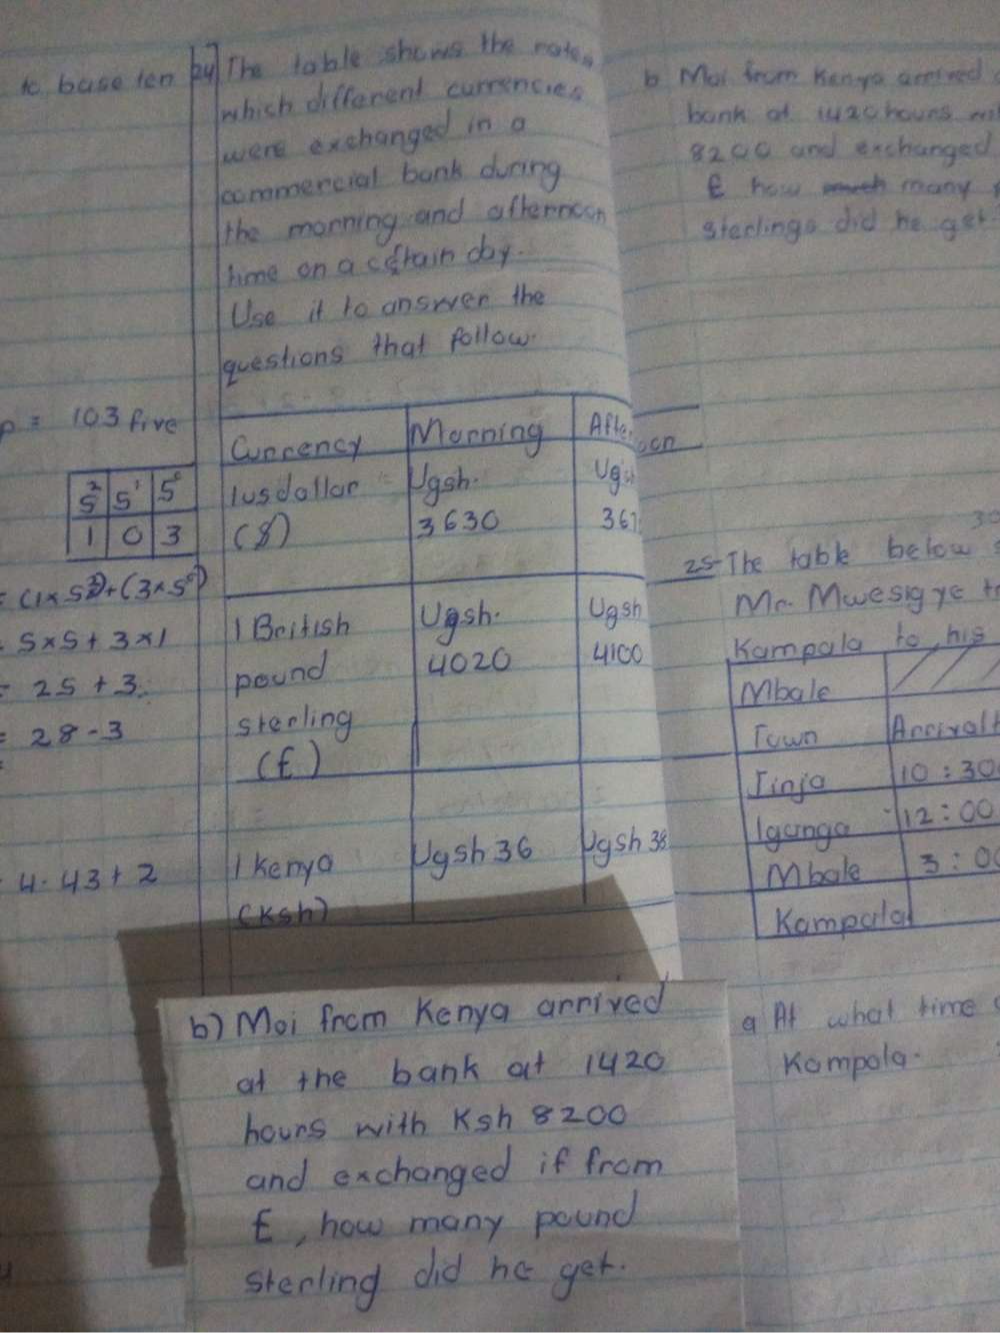 to base ten
p = 103 five
5² 5¹ 5⁰
1 0 3
= (1 x 5²) + (3 x 5⁰)
5 x 5 + 3 x 1
= 25 + 3
= 28 - 3
=
4. 43 + 2
24 The table shows the rates
which different currencies
were exchanged in a
commercial bank during
the morning and afternoon
time on a certain day.
Use it to answer the
questions that follow.
Currency Morning Afternoon
1 us dollar Ugsh. Ugsh
($) 3630 367
1 British Ugsh. Ugsh
pound 4020 4100
sterling
(£)
1 kenya Ugsh 36 Ugsh 38
(Ksh)
b) Moi from Kenya arrived
at the bank at 1420
hours with Ksh 8200
and exchanged if from
£, how many pound
sterling did he get.
b Moi from Kenya arrived
bank at 1420 hours
8200 and exchanged
£ how much many
sterlings did he get
25 The table below
Mr. Mwesigye
Kampala to his
Mbale
Town Arrival
Jinja 10:30
Iganga 12:00
Mbale 3:00
Kampala
a At what time
Kampala.